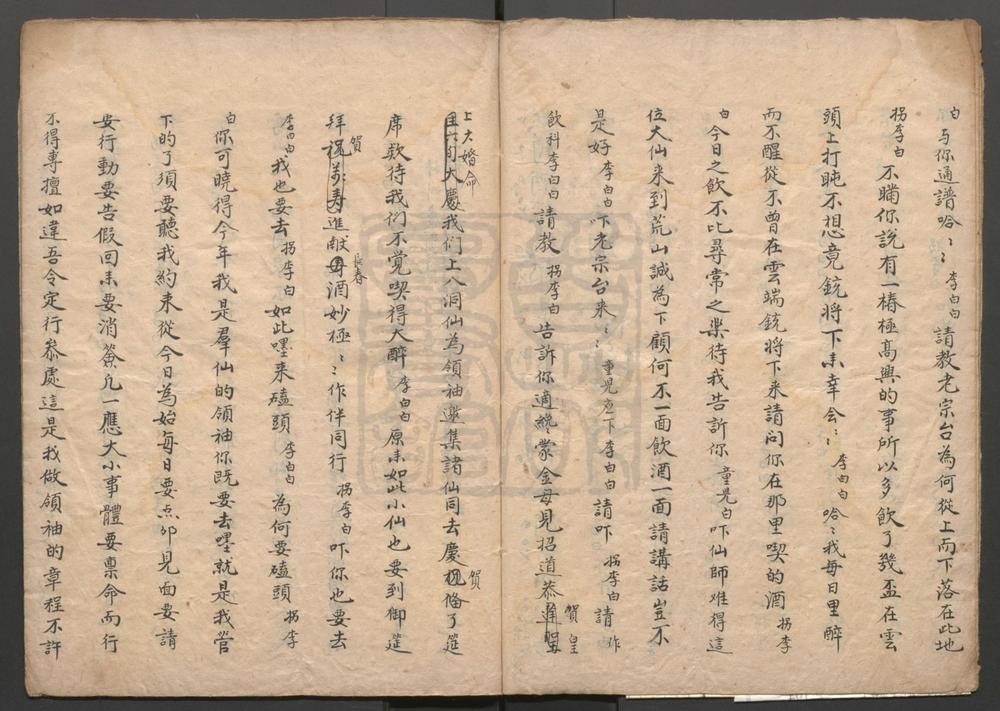 白 与你通譜哈〻〻 李白白 請教老宗台為何從上而下落在此地
拐李白 不瞞你說有一樁極高興的事所以多飲了幾盃在雲
頭上打盹不想竟銃將下来幸会〻〻 李白白 哈〻我每日里醉
而不醒從不曾在雲端銃將下来請问你在那里喫的酒 拐李
白 今日之飲不比尋常之樂待我告訴你 童児白 吓仙師难得這
位大仙来到荒山誠為下顧何不一面飲酒一面請講話豈不
是好 李白白 吓老宗台来〻〻 童児应下 李白白 請吓 拐李白 請 作
飲科 李白白 請教 拐李白 告訴你適纔蒙金母見招道恭 賀皇
上大婚命 大慶我们上八洞仙為領袖邀集諸仙同去慶 賀 俻了筵
席款待我们不觉喫得大醉 李白白 原来如此小仙也要到御筵
拜 賀 進献 長春 酒妙極〻〻作伴同行 拐李白 吓你也要去
李白白 我也要去 拐李白 如此嘿来磕頭 李白白 為何要磕頭 拐李
白 你可曉得今年我是羣仙的領袖你既要去嘿就是我管
下的了須要聽我約束從今日為始每日要点卯見面要請
安行動要告假回来要消簽凢一應大小事體要禀命而行
不得專擅如違吾令定行叅處這是我做領袖的章程不許